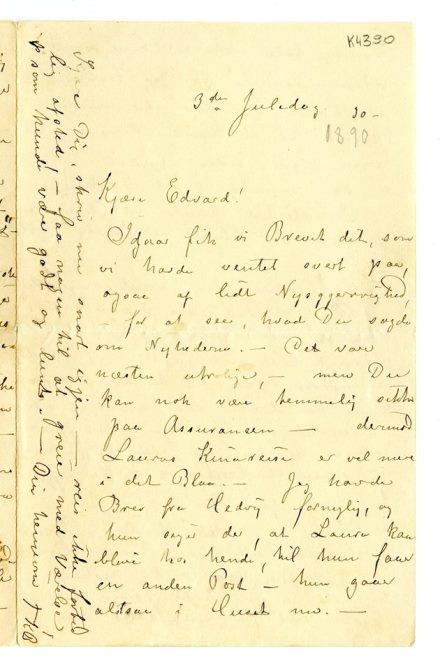 K4390
3die Juledag 90 -
1890
Kjære Edvard!
Igaar fik vi Brevet dit, som
vi havde ventet svært paa,
ogsaa af lidt Nysgjerrighed,
- for at see, hvad Du sagde
om Nyhederne. - Det var
næsten utrolige, - men Du
kan nok være temmelig sikker
paa Assurancen - derimod
Lauras Kinareise er vel mere
i det Blaa. - Jeg havde
Brev fra Hedvig fornylig, og
hun siger der, at Laura kan
blive hos hende, til hun faar
en anden Post - hun gaar
altsaa i Huset nu. -
Kjære Dig, skriv nu snart igjen - reis ikke
afsted - faa nogen til at greie med Værelse
som kunde være godt og lunt. - Din hengivne